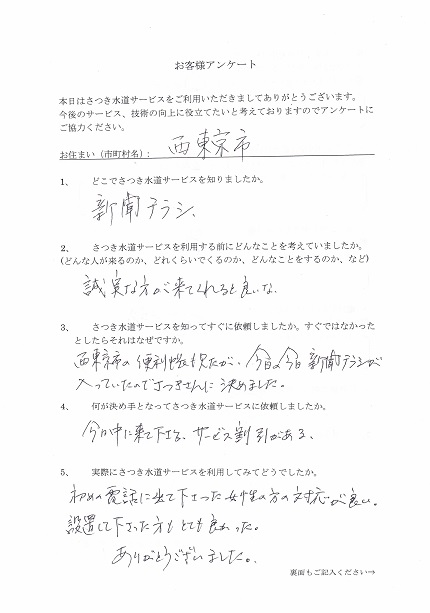 お客様アンケート
本日はさつき水道サービスをご利用いただきましてありがとうございます。
今後のサービス、技術の向上に役立てたいと考えておりますのでアンケートに
ご協力ください。
お住まい（市町村名）： 西東京市
1、 どこでさつき水道サービスを知りましたか。
新聞チラシ、
2、 さつき水道サービスを利用する前にどんなことを考えていましたか。
(どんな人が来るのか、どれくらいでくるのか、どんなことをするのか、など)
誠実な方が来てくれると良いな
3、 さつき水道サービスを知ってすぐに依頼しましたか。すぐではなかった
としたらそれはなぜですか。
西東京市の便利帳も見たが、今日の今日新聞チラシが
入っていたのでさつきさんに決めました。
4、 何が決め手となってさつき水道サービスに依頼しましたか。
今日中に来て下さる、サービス割引がある、
5、 実際にさつき水道サービスを利用してみてどうでしたか。
初めの電話に出て下さった女性の方の対応が良い。
設置して下さった方もとても良かった。
ありがとうございました。
裏面もご記入ください→